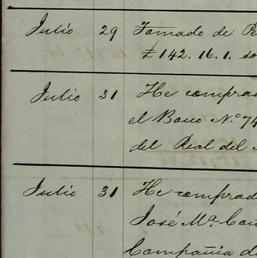 Julio 29 Tomado de
£ 142. 16. 1. so
Julio 31 He comprad
el Banco N.º 74
del Real del
Julio 31 He comprad
José Mª. Cau
Compañia d